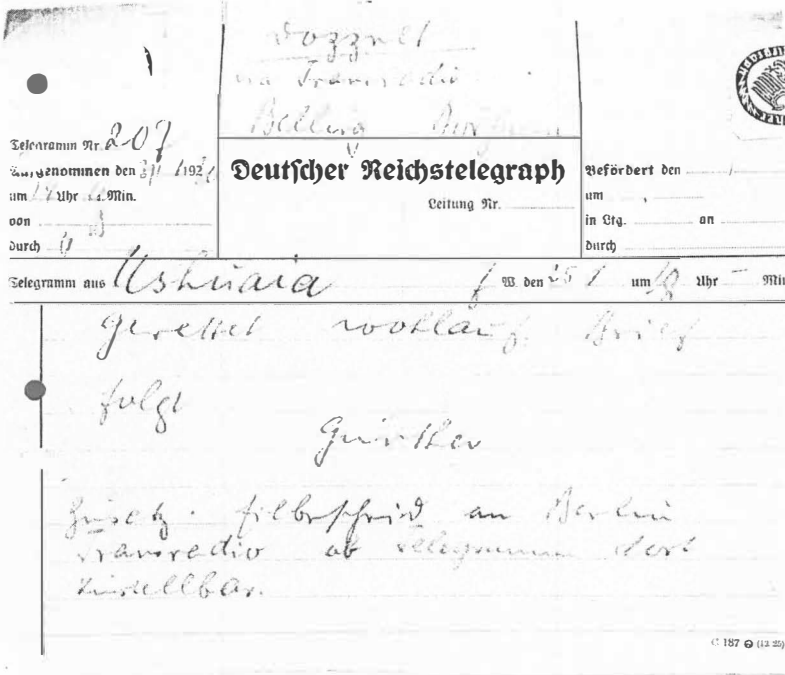 via Transradio
Telegramm Nr. 207
Aufgenommen den 192
um Uhr Min.
von
durch
Deutscher Reichstelegraph
Leitung Nr.
Befördert den
um
in Ltg. an
durch
Telegramm aus Ushuaia W. den 25 1 um 18 Uhr – Min
gerettet wohlauf. Brief
folgt
Günther
an Berlin
Transradio ob Telegramm dort
zustellbar.
C 187 (12 25)